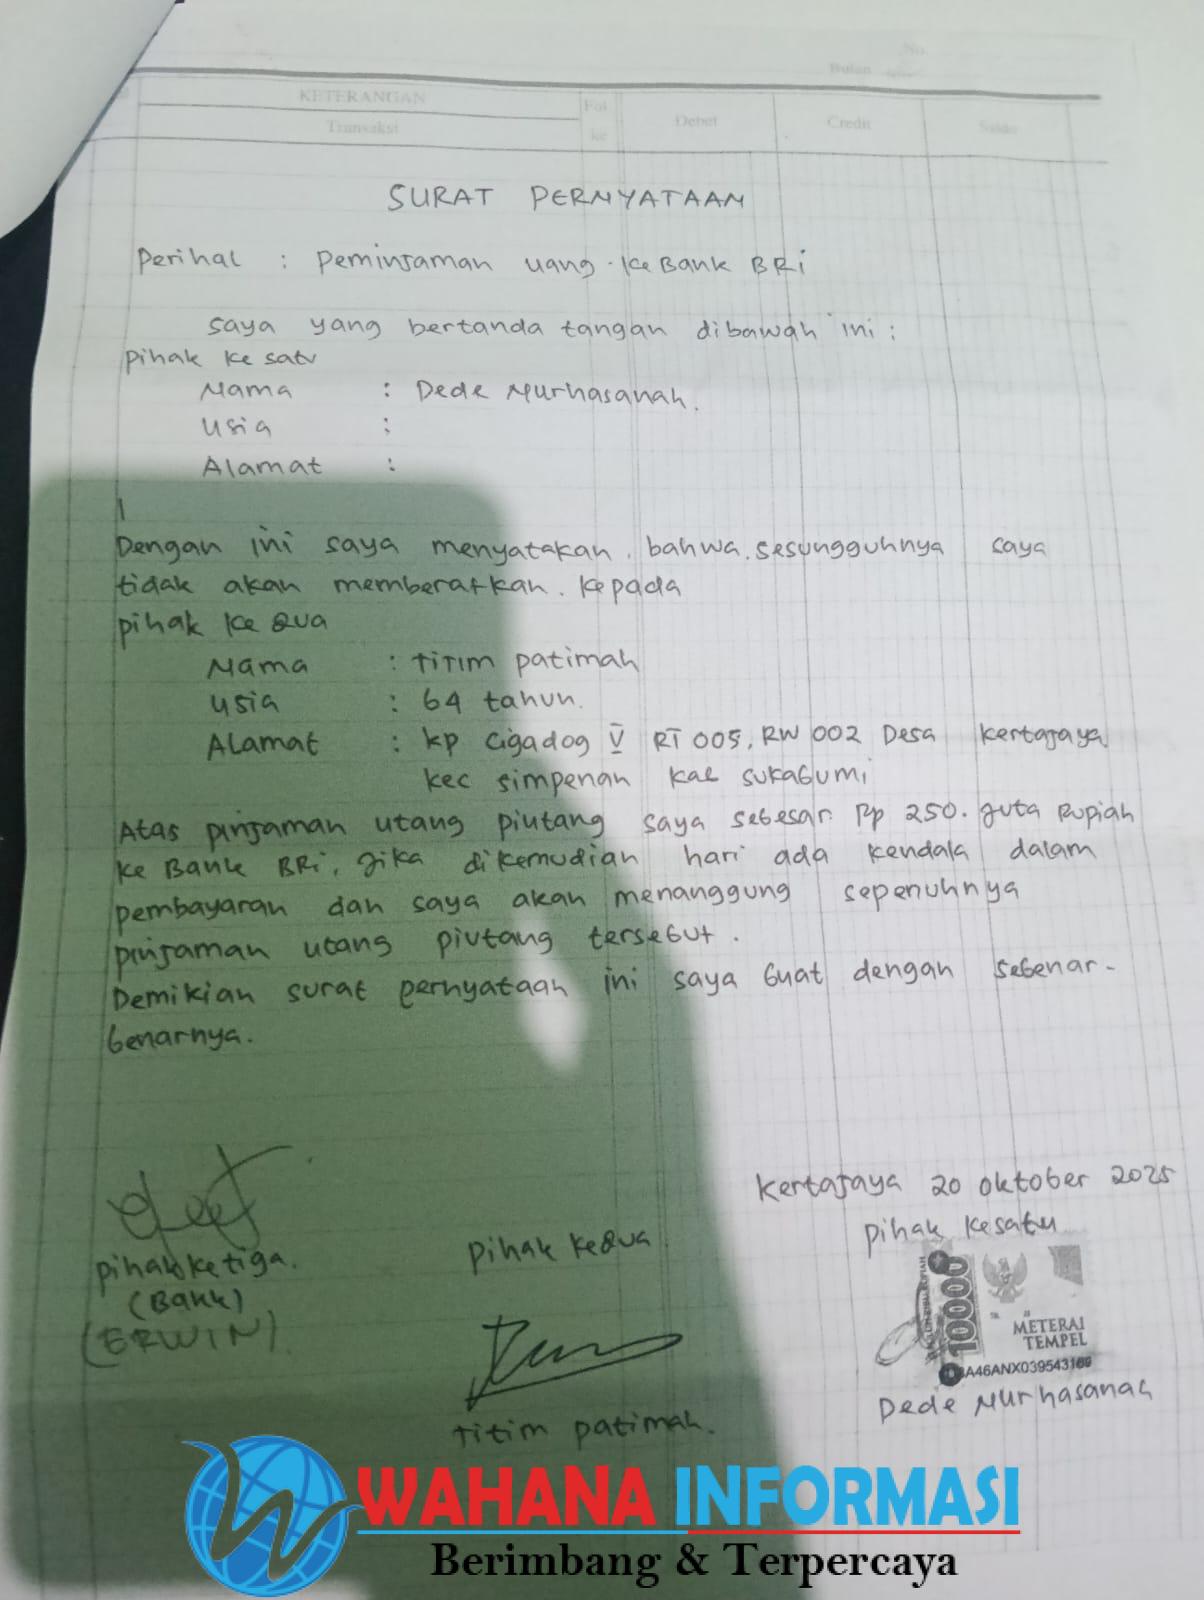 No.
Bulan
KETERANGAN
Transaksi
Fol
ke
Debet
Credit
Saldo
SURAT PERNYATAAN
Perihal : Peminjaman uang ke Bank BRi
Saya yang bertanda tangan dibawah ini :
Pihak ke satu
Nama : Dede Nurhasanah.
Usia :
Alamat :
Dengan ini saya menyatakan bahwa sesungguhnya saya
tidak akan memberatkan kepada
pihak ke dua
Nama : Titim patimah
Usia : 64 tahun.
Alamat : kp Cigadog V RT 005, RW 002 Desa Kertajaya
kec simpenan kab sukabumi
Atas pinjaman utang piutang saya sebesar Rp 250. juta Rupiah
ke Bank BRi, jika dikemudian hari ada kendala dalam
pembayaran dan saya akan menanggung sepenuhnya
pinjaman utang piutang tersebut.
Demikian surat pernyataan ini saya buat dengan sebenar-
benarnya.
Kertajaya 20 oktober 2025
pihak ketiga.
(Bank)
(ERWIN)
pihak kedua
Titim patimah.
pihak kesatu
10000
METERAI
TEMPEL
A46ANX039543169
Dede Nurhasanah
WAHANA INFORMASI
Berimbang & Terpercaya